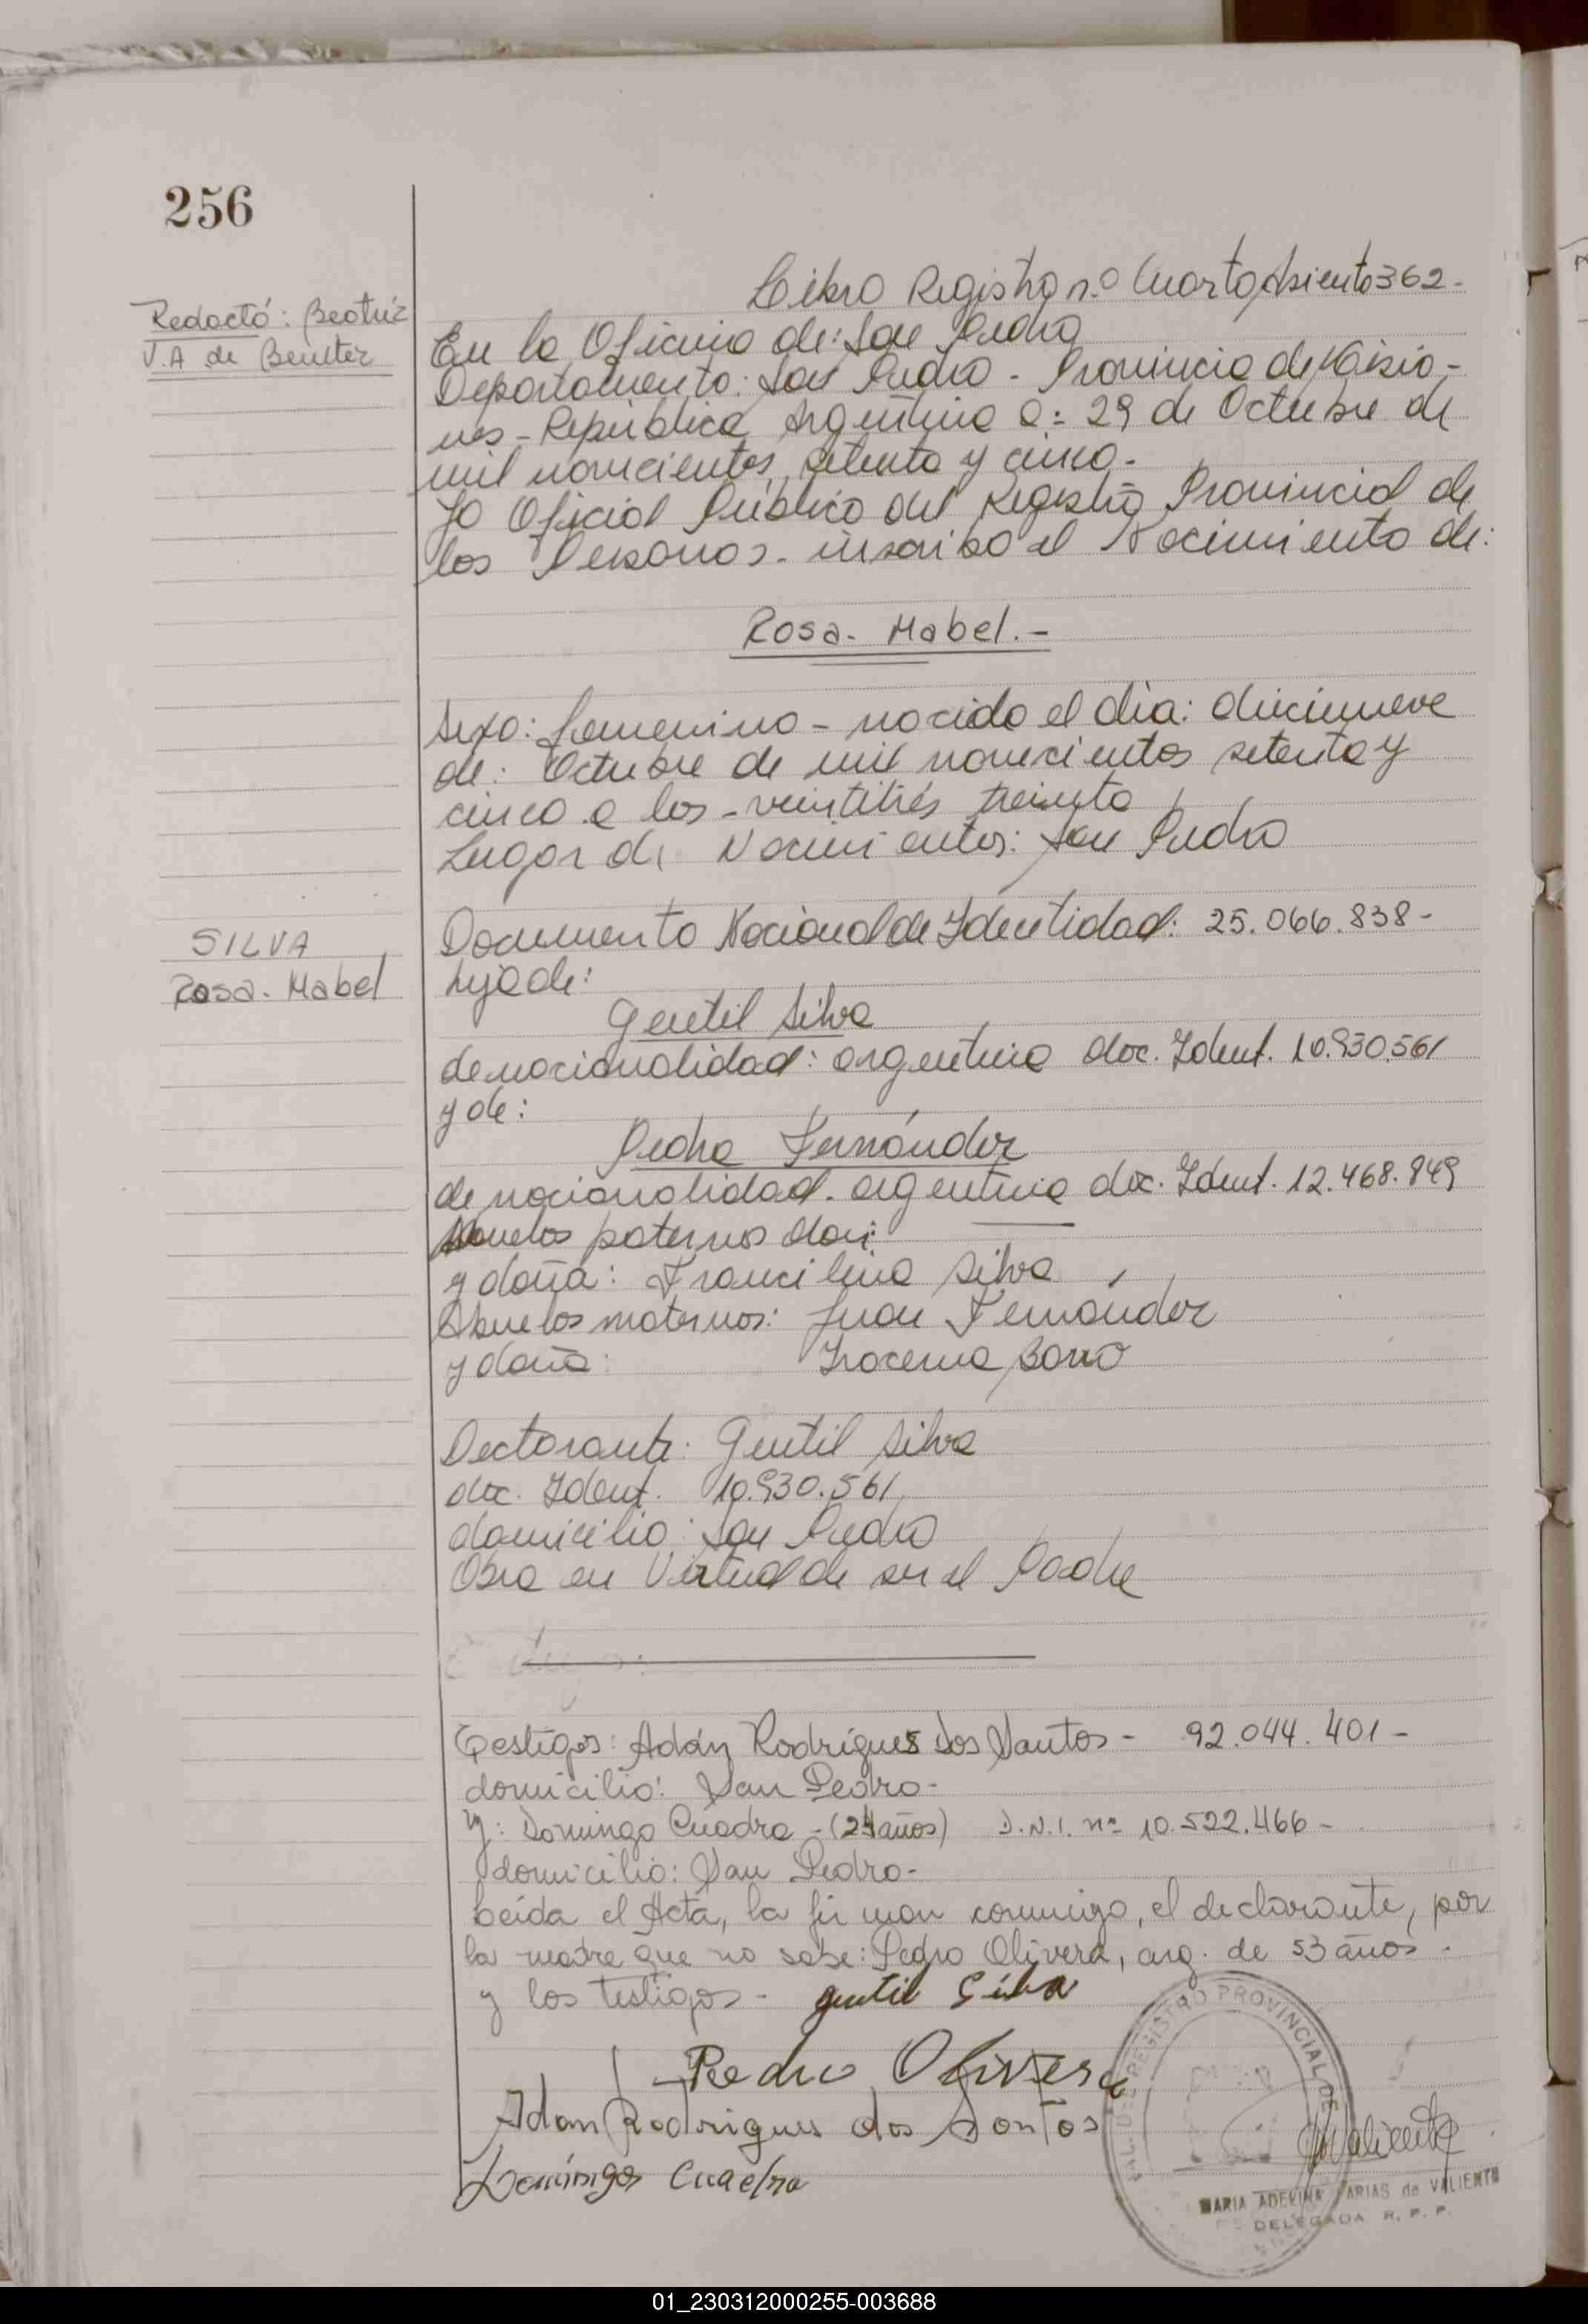 256
Libro Registro n.º Cuarto Asiento 362.-
Redactó: Beatriz
V.A de Benitez
En la Oficina de: San Pedro
Departamento: San Pedro - Provincia de Misio-
nes - República Argentina a: 29 de Octubre de
mil novecientos setenta y cinco.-
Yo Oficial Público del Registro Provincial de
las Personas - inscribo el Nacimiento de:
Rosa - Mabel.-
Sexo: femenino - nacido el día: diecinueve
de: Octubre de mil novecientos setenta y
cinco a las - veintitrés treinta
Lugar de Nacimientos: San Pedro
SILVA
Rosa - Mabel
Documento Nacional de Identidad: 25.066.838-
hija de:
Gentil Silva
de nacionalidad: argentina doc. Ident. 10.930.561
y de:
Pedra Fernández
de nacionalidad - argentina doc. Ident. 12.468.849
Abuelos paternos don:
y doña: Francilina Silva
Abuelos maternos: Juan Fernández
y doña:
Declarante: Gentil Silva
doc. Ident. 10.930.561
domicilio: San Pedro
Obra en Virtud de ser el Padre
Testigos: Adán Rodrigues Dos Santos - 92.044.401 -
domicilio: San Pedro-
y: Domingo Cuadra - (24 años) D.N.I. nº 10.522.466 -
domicilio: San Pedro-
Leída el Acta, la firman conmigo, el declarante, por
la madre que no sabe: Pedro Olivera, arg. de 53 años -
y los testigos - gentil Silva
Pedro Olivera
Adan Rodrigues dos Santos
Domingos Cuadra
REGISTRO PROVINCIAL DE
MARIA ADELINA FARIAS de VALIENTE
DELEGADA R. P. P.
01_230312000255-003688